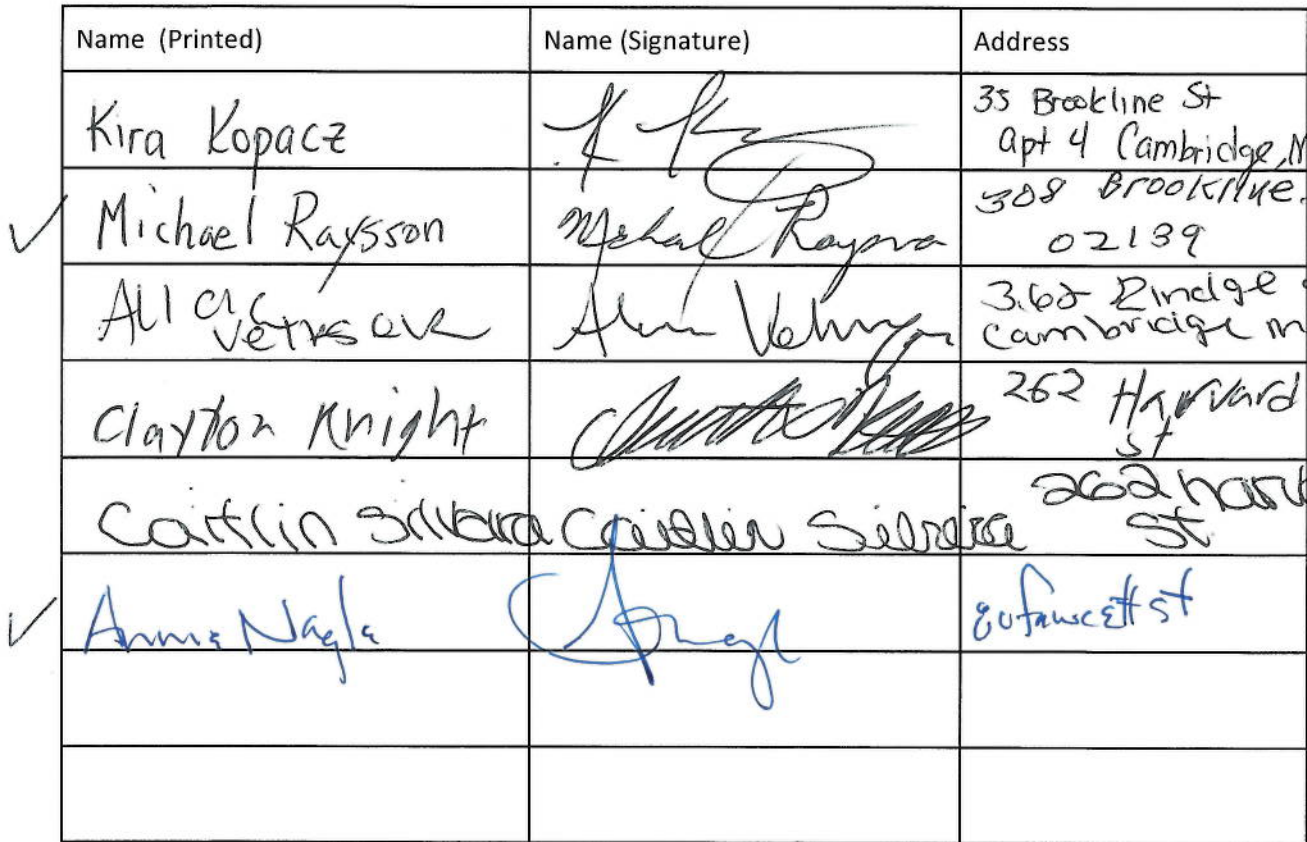 Name (Printed) Name (Signature) Address
Kira Kopacz 35 Brookline St
Apt 4 Cambridge, M
✓ Michael Raysson Michael Raysson 308 Brookline
02139
Rindge
Cambridge m
Clayton Knight 262 Harvard
St
Caitlin Silveira Caitlin Silveira 262 harv
St
✓ Nagle Fawcett St